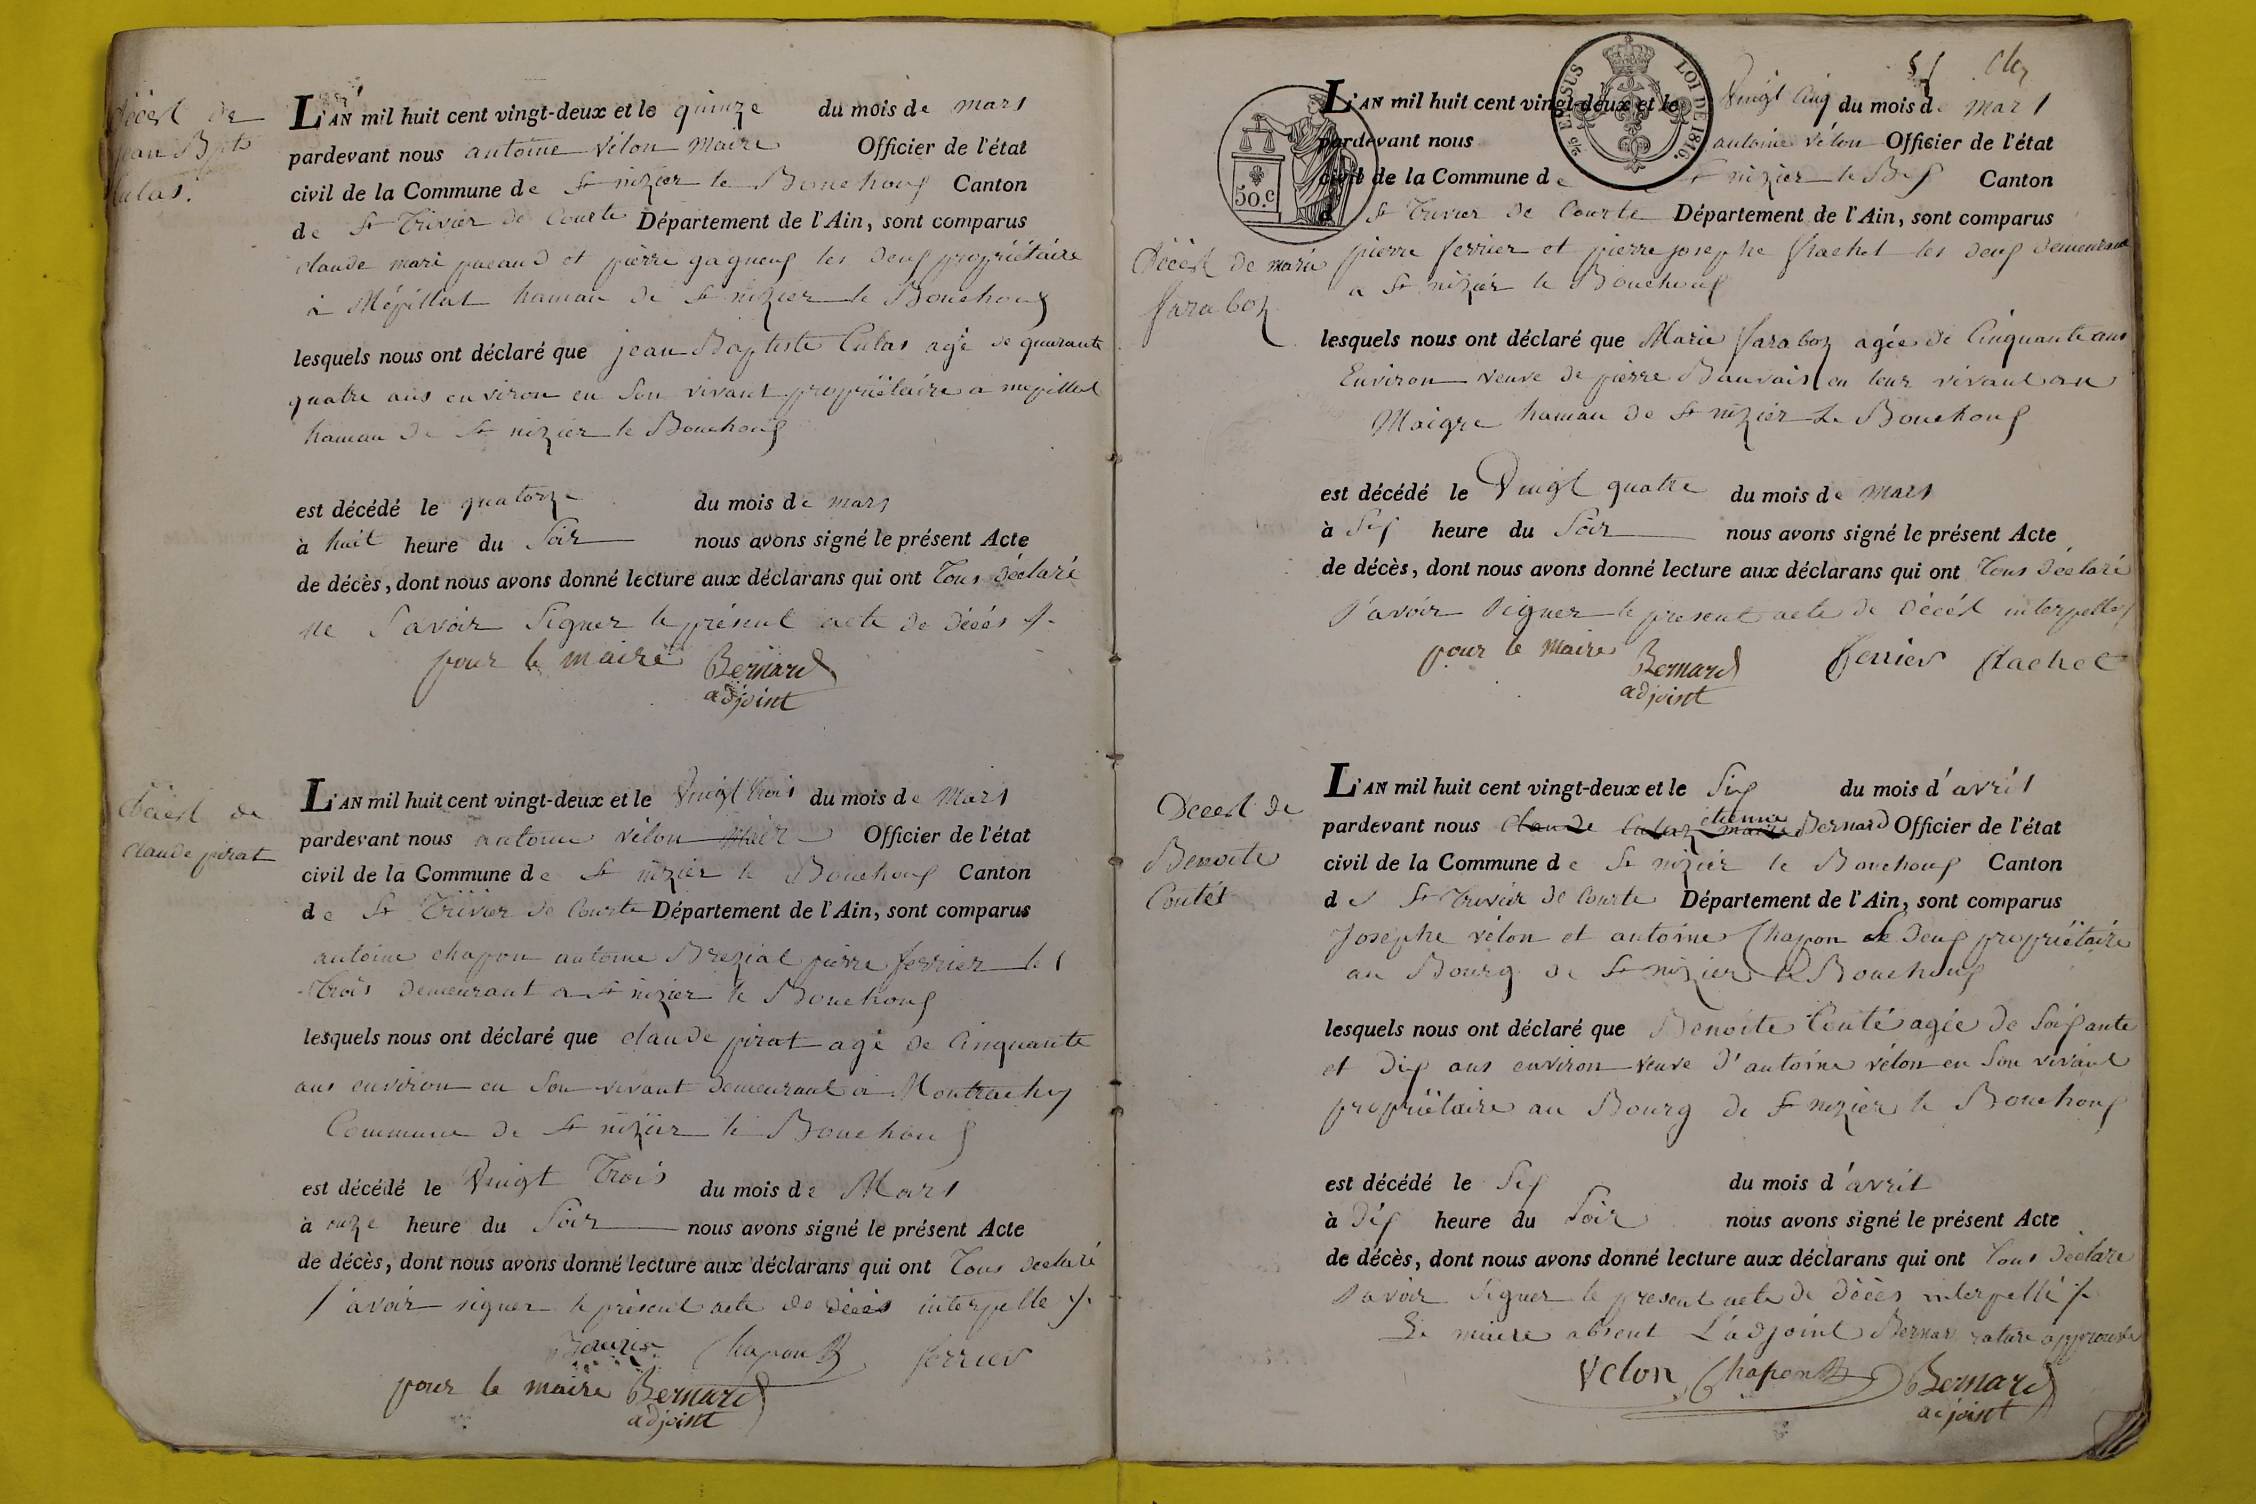 décést de
jean Bpte
Culas.
L'AN mil huit cent vingt-deux et le quinze du mois de mars
pardevant nous antoine vélon maire Officier de l'état
civil de la Commune de St nizier le Bouchoux Canton
de St Trivier de Courte Département de l'Ain, sont comparus
claude marie pacaud et pierre gagneux les deux propriétaire
à Mépillat hamau de St nizier le Bouchoux
lesquels nous ont déclaré que jean Baptiste Culas agé de quarante
quatre ans environ en son vivant propriétaire a mepillat
hamau de St nizier le Bouchoux
est décédé le quatorze du mois de mars
à huit heure du Soir nous avons signé le présent Acte
de décès, dont nous avons donné lecture aux déclarans qui ont Tous déclaré
ne Savoir Signer le présent acte de décés
pour le maire Bernard
adjoint
décést de
claude pirat
L'AN mil huit cent vingt-deux et le Vingt trois du mois de Mars
pardevant nous antoine vélon maire Officier de l'état
civil de la Commune de St nizier le Bouchoux Canton
de St Trivier de Courte Département de l'Ain, sont comparus
antoine chapon antoine Brezial pierre ferrier les
trois demeurant a St nizier le Bouchoux
lesquels nous ont déclaré que claude pirat agé de Cinquante
ans environ en son vivant demeurant à Montrachy
Commune de St nizier le Bouchoux
est décédé le Vingt Trois du mois de Mars
à onze heure du Soir nous avons signé le présent Acte
de décès, dont nous avons donné lecture aux déclarans qui ont Tous declaré
Savoir signer le présent acte de décès interpelle
Chapon ferrier
pour le maire Bernard
adjoint
LOI DE 1816.
50.c
L'AN mil huit cent vingt-deux et le Vingt Cinq du mois de mars
pardevant nous antoine vélon Officier de l'état
civil de la Commune de St nizier le Bux Canton
d St Trivier de Courte Département de l'Ain, sont comparus
pierre ferrier et pierre josephe flachet les deux demeurant
a St nizier le Bouchoux
Décést de marie
faraboz
lesquels nous ont déclaré que Marie faraboz agée de Cinquante ans
Environ veuve de pierre Bauvais en leur vivant au
Maigre hamau de St nizier Le Bouchoux
est décédé le Vingt quatre du mois de mars
à Six heure du Soir nous avons signé le présent Acte
de décès, dont nous avons donné lecture aux déclarans qui ont Tous déclaré
Savoir Signer le present acte de décést interpelles
pour le Maire Bernard ferrier flachet
adjoint
Décést de
Benoite
Coutét
L'AN mil huit cent vingt-deux et le Six du mois d'avril
pardevant nous claude Culaz maire etienne Bernard Officier de l'état
civil de la Commune de St nizier le Bouchoux Canton
de St Trivier de Courte Département de l'Ain, sont comparus
Josephe vélon et antoine Chapon le deux propriétaire
au Bourg de St nizier le Bouchoux
lesquels nous ont déclaré que Benoite Couté agée de Soixante
et Dix ans environ veuve d'antoine vélon en Son vivant
propriétaire au Bourg de St nizier le Bouchoux
est décédé le Six du mois d'avril
à Dix heure du Soir nous avons signé le présent Acte
de décès, dont nous avons donné lecture aux déclarans qui ont Tous déclaré
Savoir Signer le present acte de décès interpellé
Le maire absent L'adjoint Bernar rature approuvée
velon Chapon Bernard
adjoint